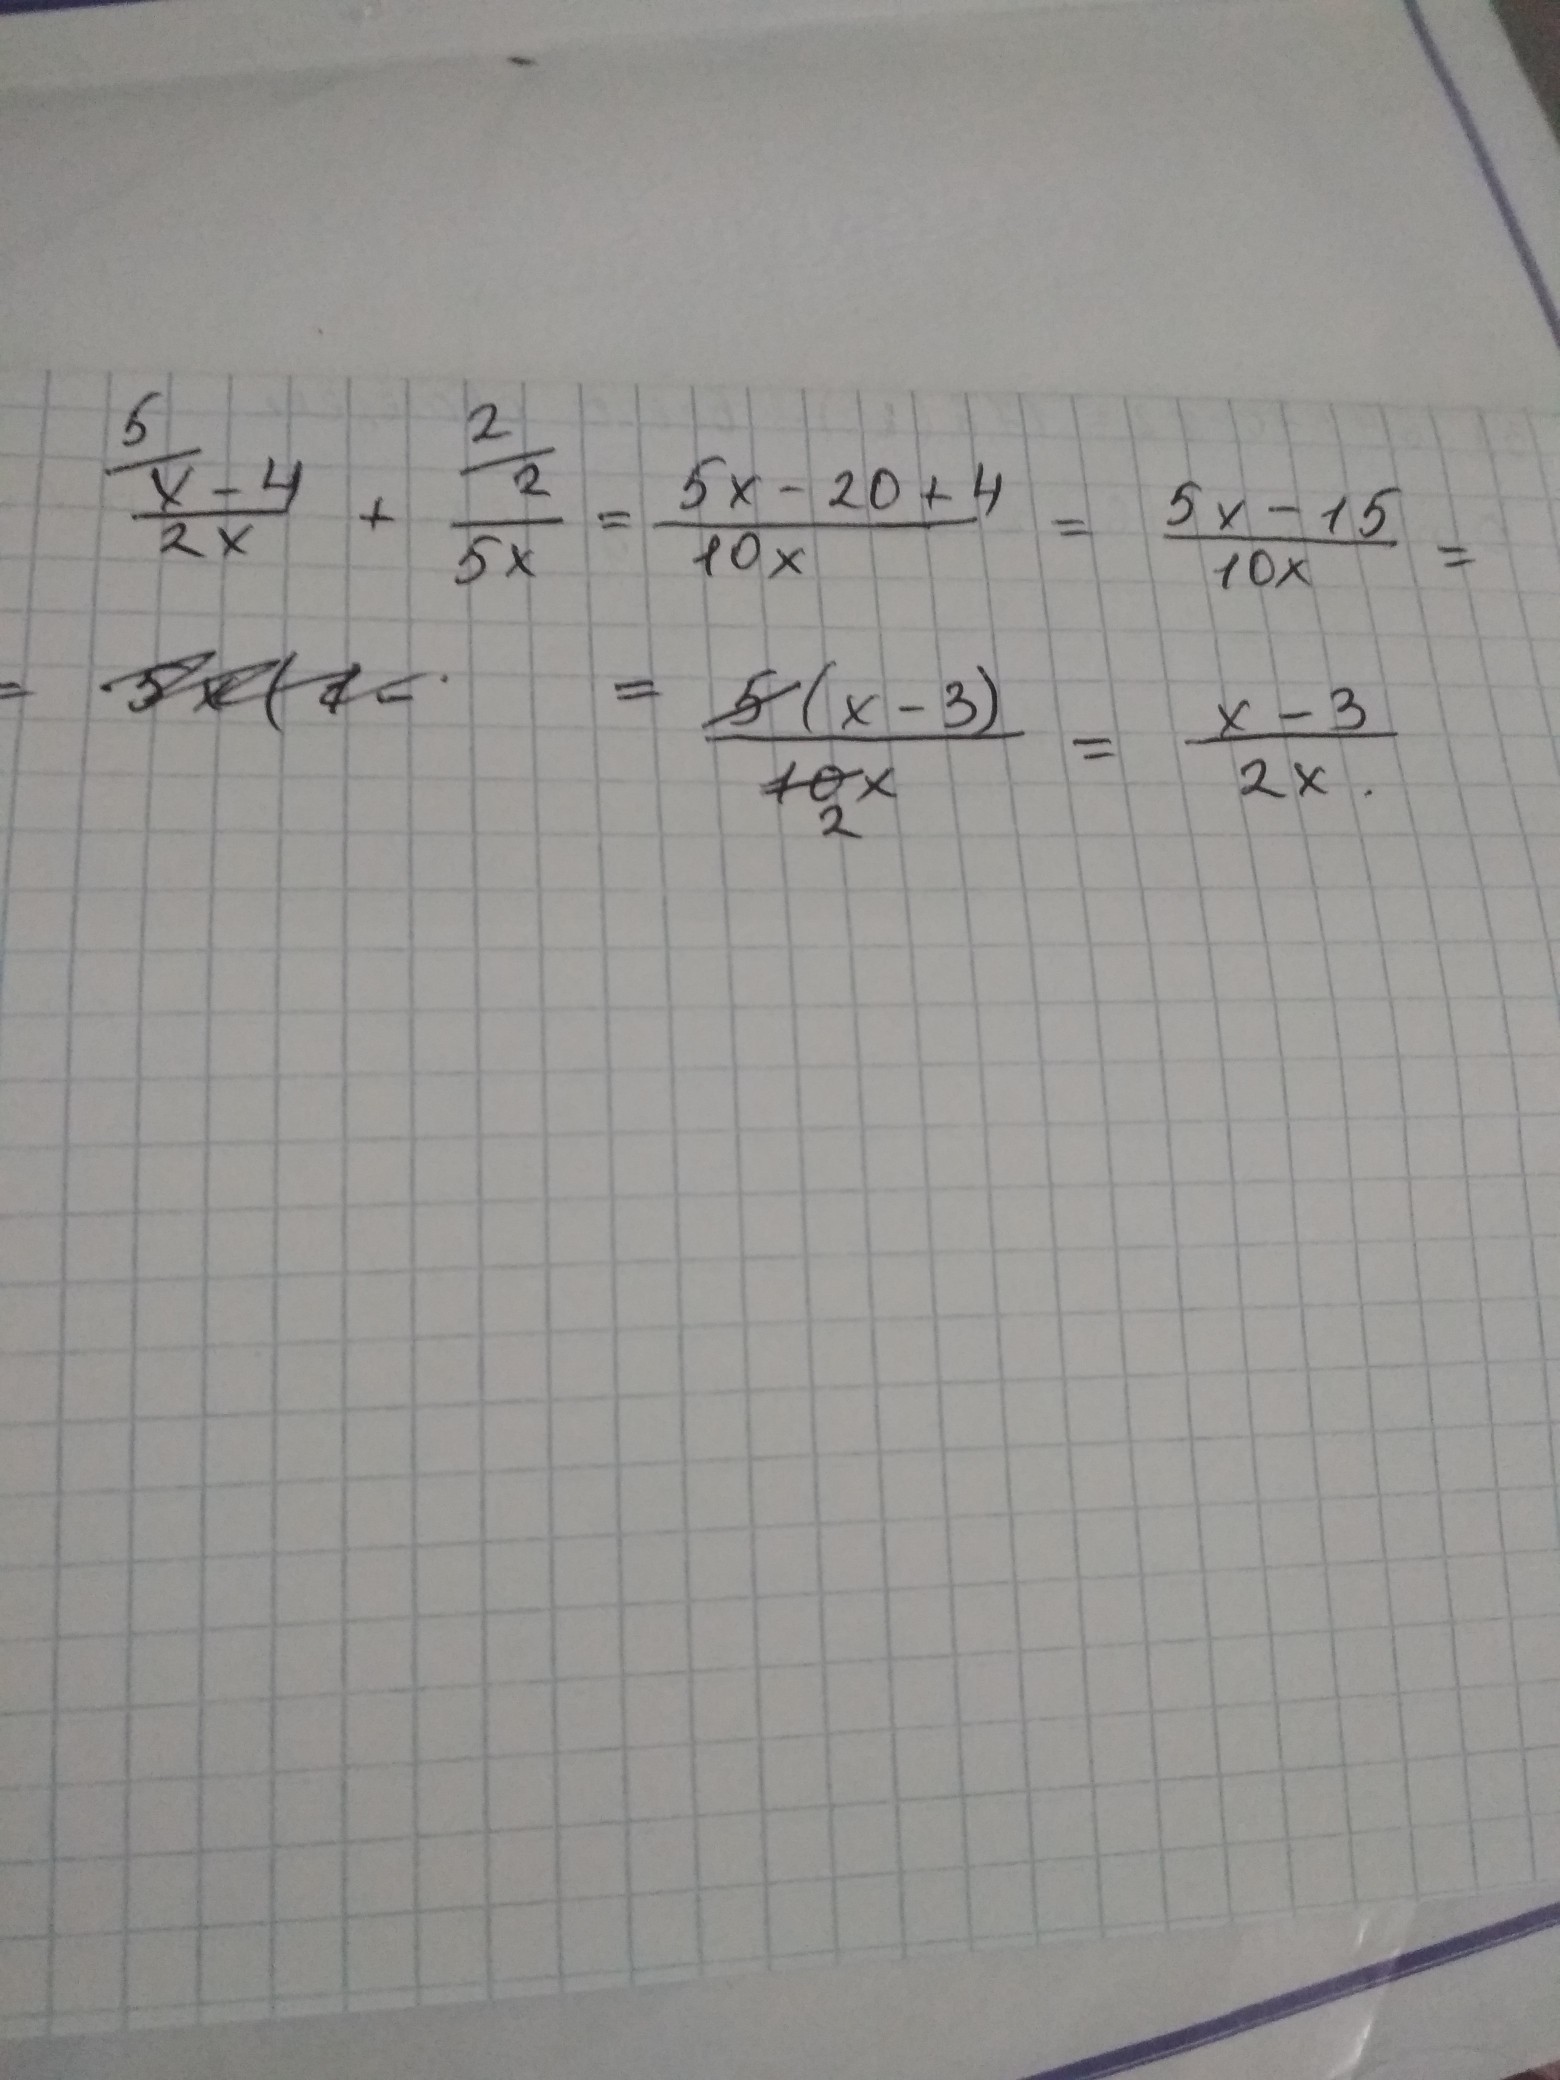 5/ x-4/2x + 2/ 2/5x = 5x-20+4/10x = 5x-15/10x =
= = 5(x-3)/10x 2 = x-3/2x.